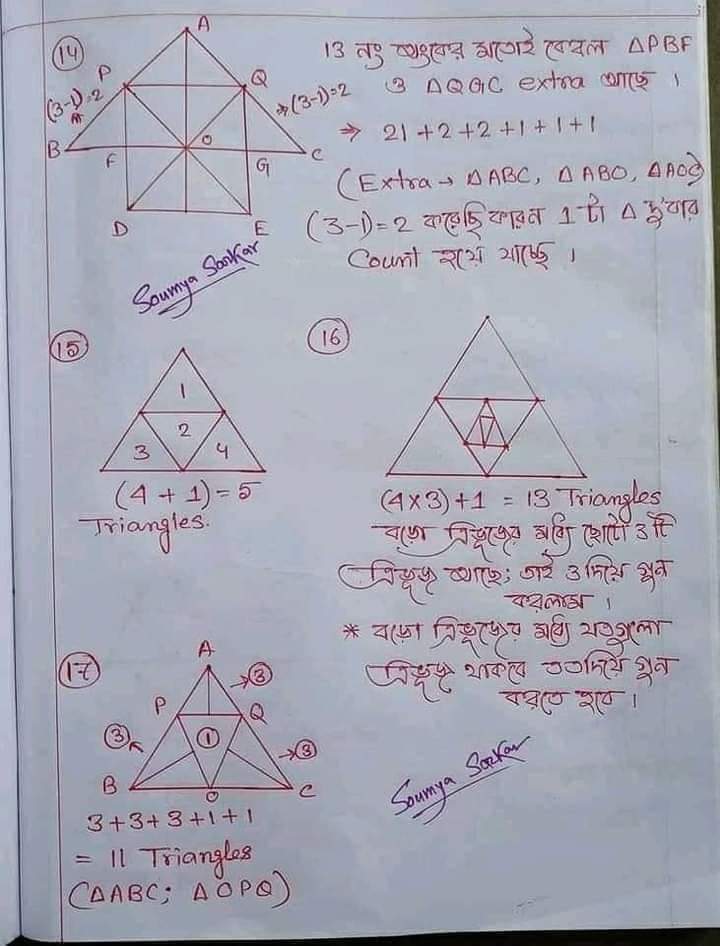 14
A
P
Q
(3-1)=2
(3-1)=2
B
F
O
G
C
D
E
13 নং অংকের মতোই কেবল ΔPBF
ও ΔQGC extra আছে।
⇒ 21+2+2+1+1+1
(Extra → ΔABC, ΔABO, ΔAOC)
(3-1)=2 করেছি কারন 1 টা Δ দু'বার
Count হয়ে যাচ্ছে।
Soumya Sarkar
15
1
2
3
4
(4+1)=5
Triangles.
16
(4×3)+1 = 13 Triangles
বড়ো ত্রিভূজের মধ্যে ছোটো 3 টি
ত্রিভূজ আছে; তাই 3 দিয়ে গুন
করলাম।
* বড়ো ত্রিভূজের মধ্যে যতগুলো
ত্রিভূজ থাকবে ততদিয়ে গুন
করতে হবে।
Soumya Sarkar
17
A
→ 3
P
Q
3
1
→ 3
B
O
C
3+3+3+1+1
= 11 Triangles
(ΔABC; ΔOPQ)